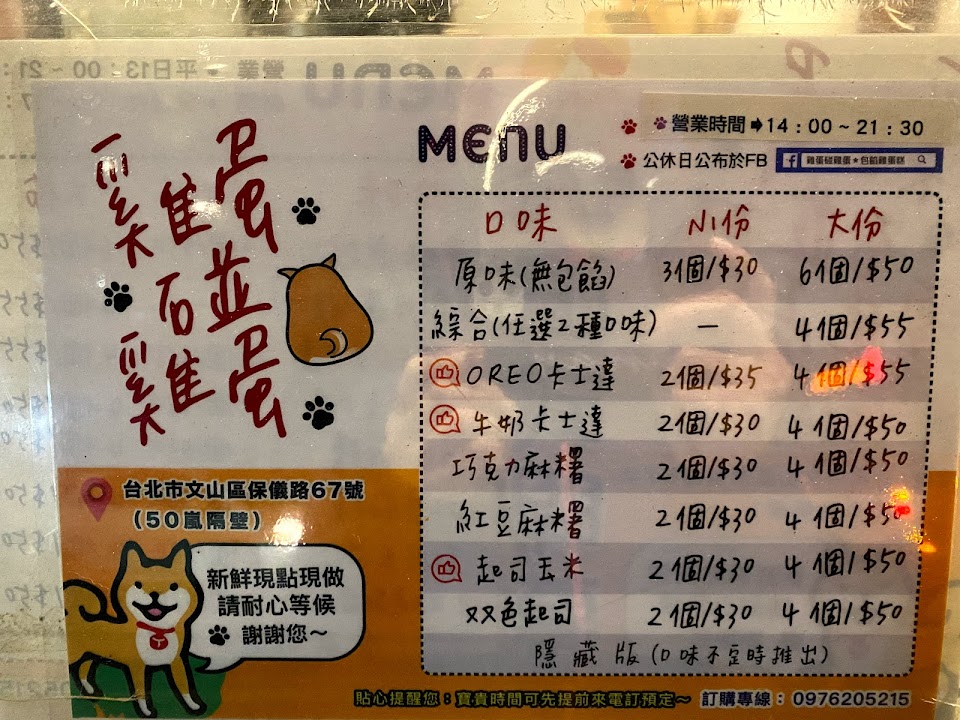 雞蛋碰雞蛋
MENU
營業時間➡14：00～21：30
公休日公布於FB
雞蛋碰雞蛋★包餡雞蛋糕
口味 小份 大份
原味(無包餡) 3個/$30 6個/$50
綜合(任選2種口味) — 4個/$55
OREO卡士達 2個/$35 4個/$55
牛奶卡士達 2個/$30 4個/$50
巧克力麻糬 2個/$30 4個/$50
紅豆麻糬 2個/$30 4個/$50
起司玉米 2個/$30 4個/$50
双色起司 2個/$30 4個/$50
隱藏版(口味不定時推出)
台北市文山區保儀路67號
(50嵐隔壁)
新鮮現點現做
請耐心等候
謝謝您~
貼心提醒您：寶貴時間可先提前來電訂預定~ 訂購專線：0976205215